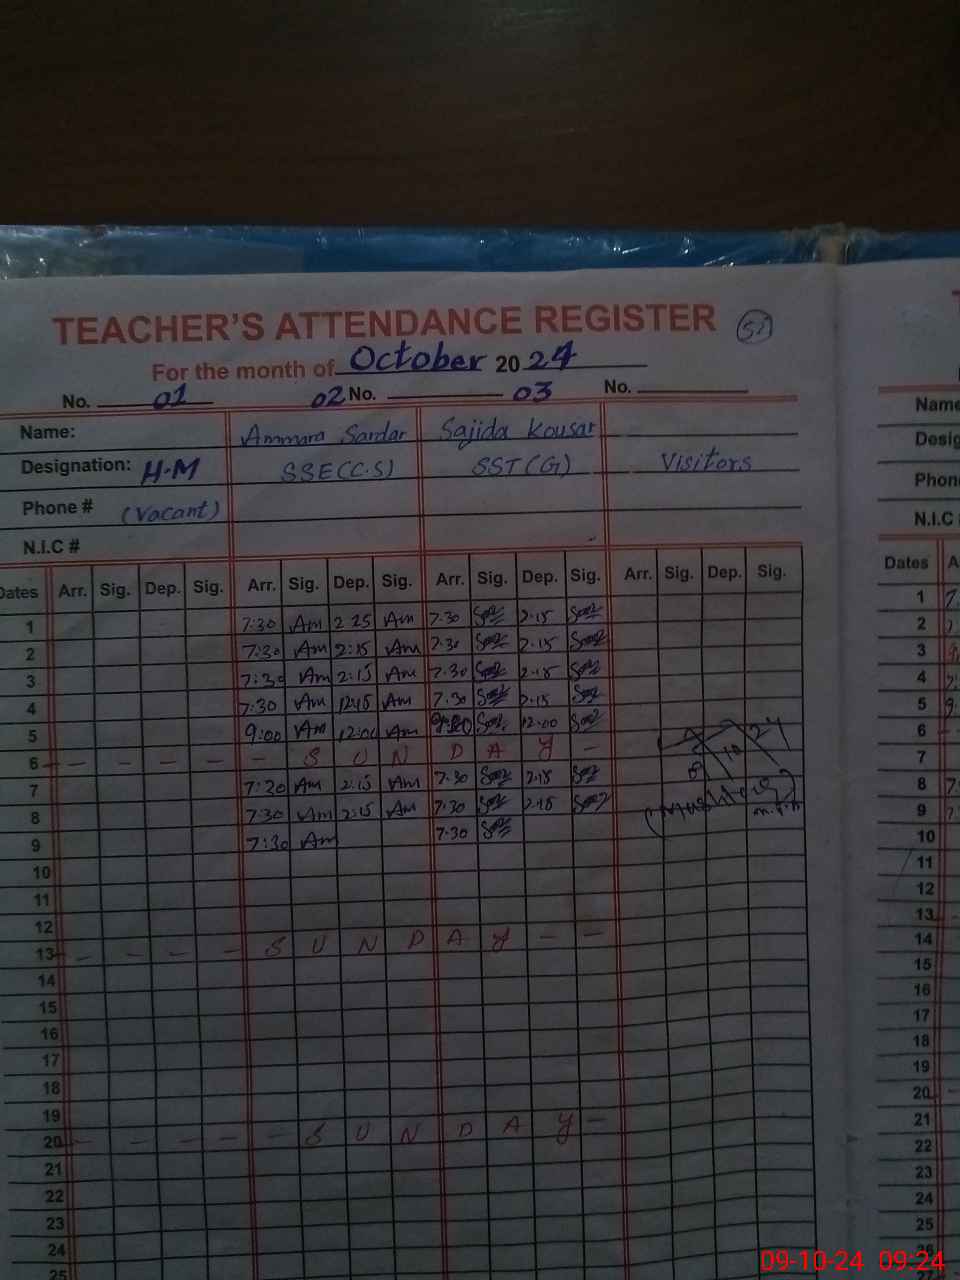 TEACHER'S ATTENDANCE REGISTER 51
For the month of October 2024
No. 01 02 No. 03 No.
Name: Ammara Sardar Sajida Kousar
Designation: H.M SSE(C.S) SST(G) Visitors
Phone # (Vacant)
N.I.C #
Dates Arr. Sig. Dep. Sig. Arr. Sig. Dep. Sig. Arr. Sig. Dep. Sig. Arr. Sig. Dep. Sig.
1 7:30 Am 2:25 Am 7.30 2.15
2 7:30 Am 2:15 Am 7.30 2.15
3 7:30 Am 2:15 Am 7.30 2.15
4 7:30 Am 12:15 Am 7.30 2.15
5 9:00 Am 12:00 Am 9:00 12:00
6 - - - - - S U N D A Y -
7 7:30 Am 2:15 Am 7.30 2.15
8 7:30 Am 2:15 Am 7.30 2.15
9 7:30 Am 7.30
10
11
12
13 - - - - S U N D A Y - -
14
15
16
17
18
19
20 - - - - - S U N D A Y -
21
22
23
24
25
Name
Desig
Phon
N.I.C
Dates A
1
2
3
4
5
6
7
8
9
10
11
12
13
14
15
16
17
18
19
20
21
22
23
24
25
26
09-10-24 09:24